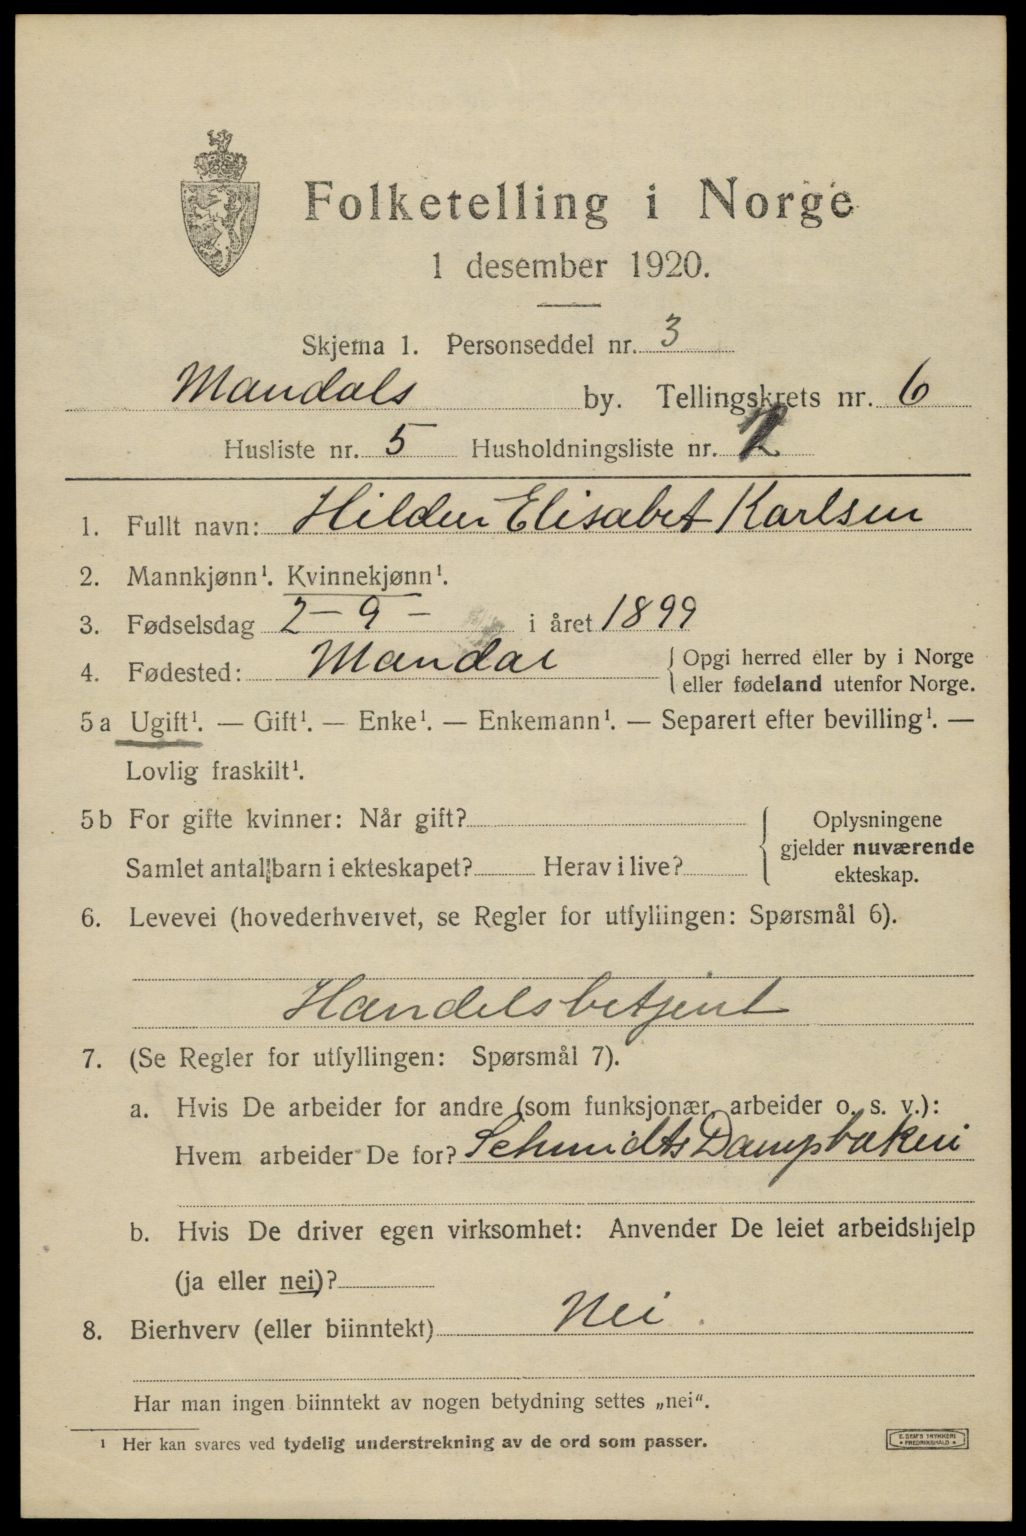 Folketelling i Norge
1 desember 1920.
Skjema 1. Personseddel nr. 3
Mandals by. Tellingskrets nr. 6
Husliste nr. 5 Husholdningsliste nr. 2
1. Fullt navn: Hildur Elisabet Karlsen
2. Mannkjønn¹. Kvinnekjønn¹.
3. Fødselsdag 2 – 9 – i året 1899
4. Fødested: Mandal { Opgi herred eller by i Norge
eller fødeland utenfor Norge.
5a Ugift¹. — Gift¹. — Enke¹. — Enkemann¹. — Separert efter bevilling¹. —
Lovlig fraskilt¹.
5b For gifte kvinner: Når gift? { Oplysningene
gjelder nuværende
Samlet antall barn i ekteskapet? Herav i live? ekteskap.
6. Levevei (hovederhvervet, se Regler for utfyllingen: Spørsmål 6).
Handelsbetjent
7. (Se Regler for utfyllingen: Spørsmål 7).
a. Hvis De arbeider for andre (som funksjonær, arbeider o. s. v.):
Hvem arbeider De for? Schmidts Dampbakeri
b. Hvis De driver egen virksomhet: Anvender De leiet arbeidshjelp
(ja eller nei)?
8. Bierhverv (eller biinntekt) Nei.
Har man ingen biinntekt av nogen betydning settes „nei“.
¹ Her kan svares ved tydelig understrekning av de ord som passer.